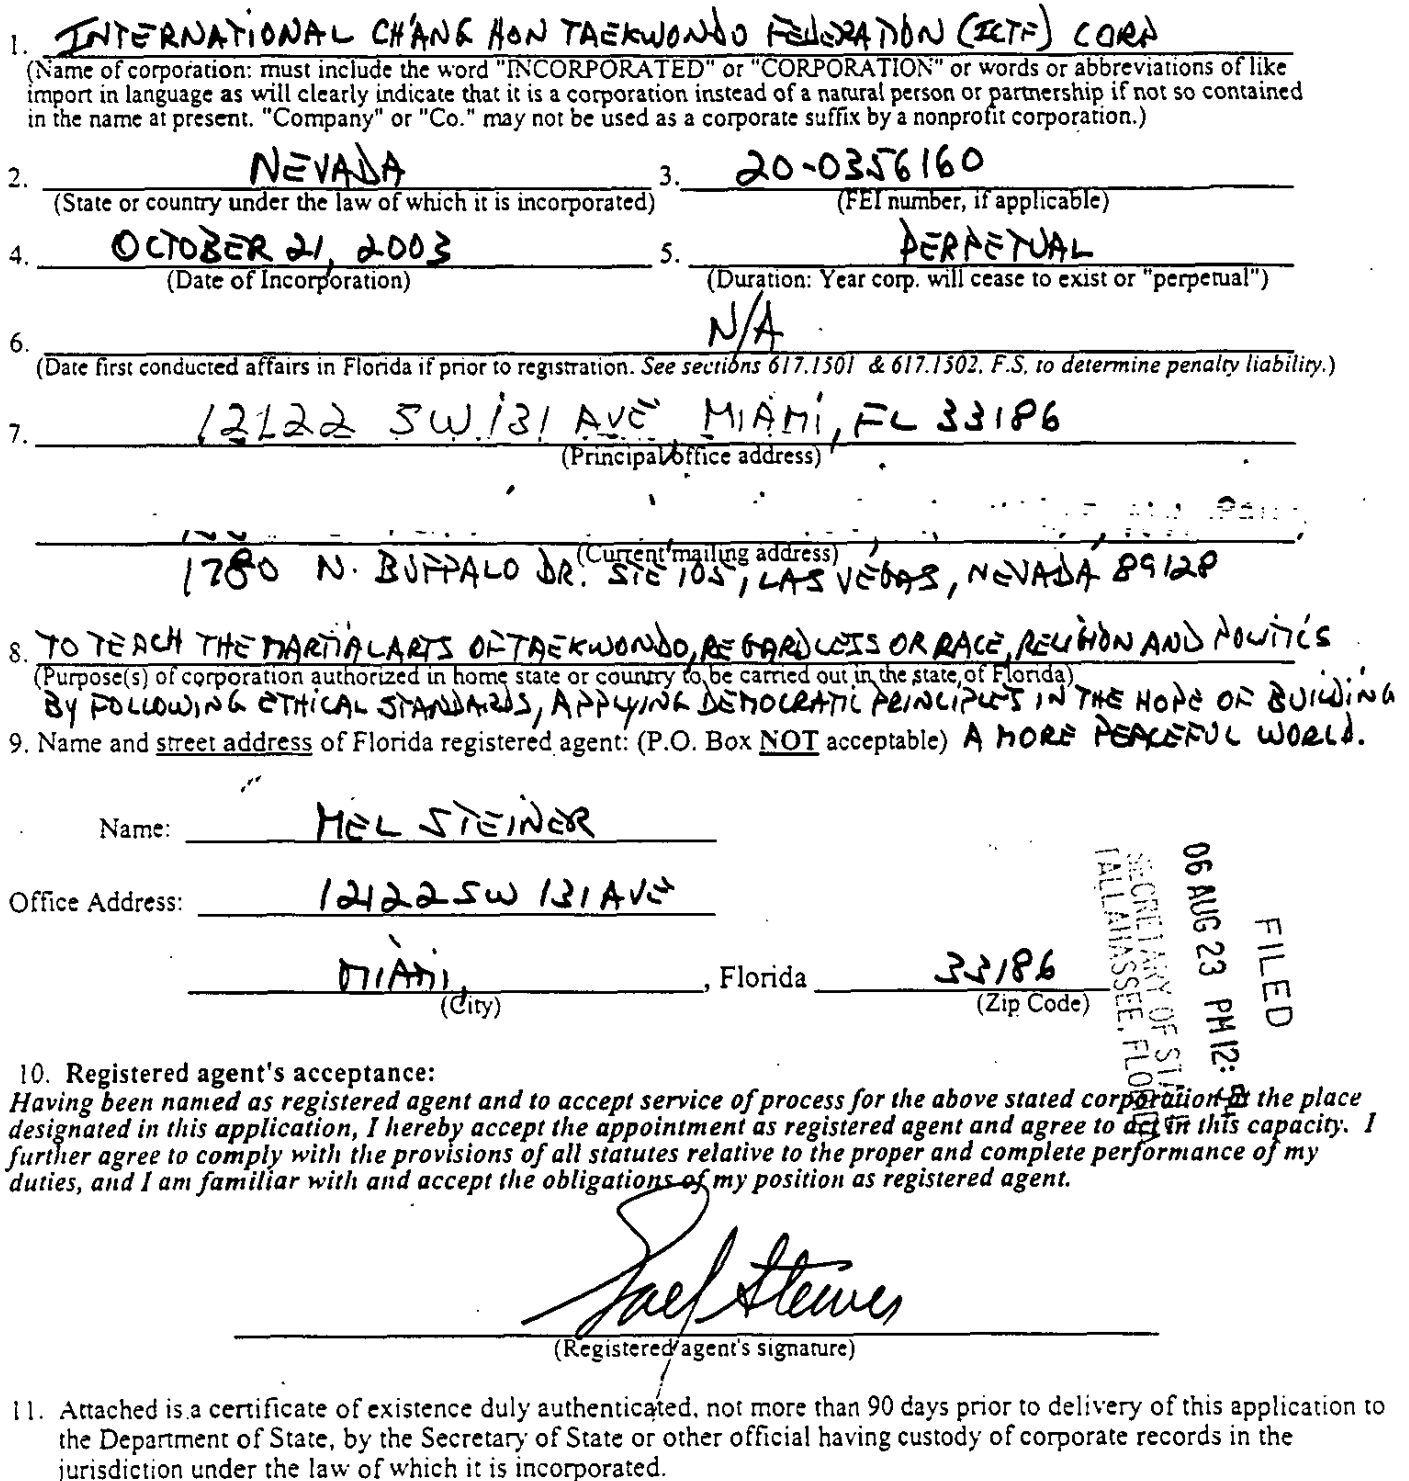 1. INTERNATIONAL CH'ANG HON TAEKWONDO FEDERATION (ICTF) CORP
(Name of corporation: must include the word "INCORPORATED" or "CORPORATION" or words or abbreviations of like
import in language as will clearly indicate that it is a corporation instead of a natural person or partnership if not so contained
in the name at present. "Company" or "Co." may not be used as a corporate suffix by a nonprofit corporation.)
2. NEVADA 3. 20-0356160
(State or country under the law of which it is incorporated) (FEI number, if applicable)
4. OCTOBER 21, 2003 5. PERPETUAL
(Date of Incorporation) (Duration: Year corp. will cease to exist or "perpetual")
6. N/A
(Date first conducted affairs in Florida if prior to registration. See sections 617.1501 & 617.1502, F.S. to determine penalty liability.)
7. 12122 SW 131 AVE MIAMI, FL 33186
(Principal office address)
(Current mailing address)
1780 N. BUFFALO DR. STE 105, LAS VEGAS, NEVADA 89128
8. TO TEACH THE MARTIAL ARTS OF TAEKWONDO, REGARDLESS OR RACE, RELIGION AND POLITICS
(Purpose(s) of corporation authorized in home state or country to be carried out in the state of Florida)
BY FOLLOWING ETHICAL STANDARDS, APPLYING DEMOCRATIC PRINCIPLES IN THE HOPE OF BUILDING
9. Name and street address of Florida registered agent: (P.O. Box NOT acceptable) A MORE PEACEFUL WORLD.
Name: MEL STEINER
Office Address: 12122 SW 131 AVE
MIAMI, , Florida 33186
(City) (Zip Code)
FILED
06 AUG 23 PM 12:
SECRETARY OF STATE
TALLAHASSEE, FLORIDA
10. Registered agent's acceptance:
Having been named as registered agent and to accept service of process for the above stated corporation at the place
designated in this application, I hereby accept the appointment as registered agent and agree to act in this capacity. I
further agree to comply with the provisions of all statutes relative to the proper and complete performance of my
duties, and I am familiar with and accept the obligations of my position as registered agent.
(Registered agent's signature)
11. Attached is a certificate of existence duly authenticated, not more than 90 days prior to delivery of this application to
the Department of State, by the Secretary of State or other official having custody of corporate records in the
jurisdiction under the law of which it is incorporated.